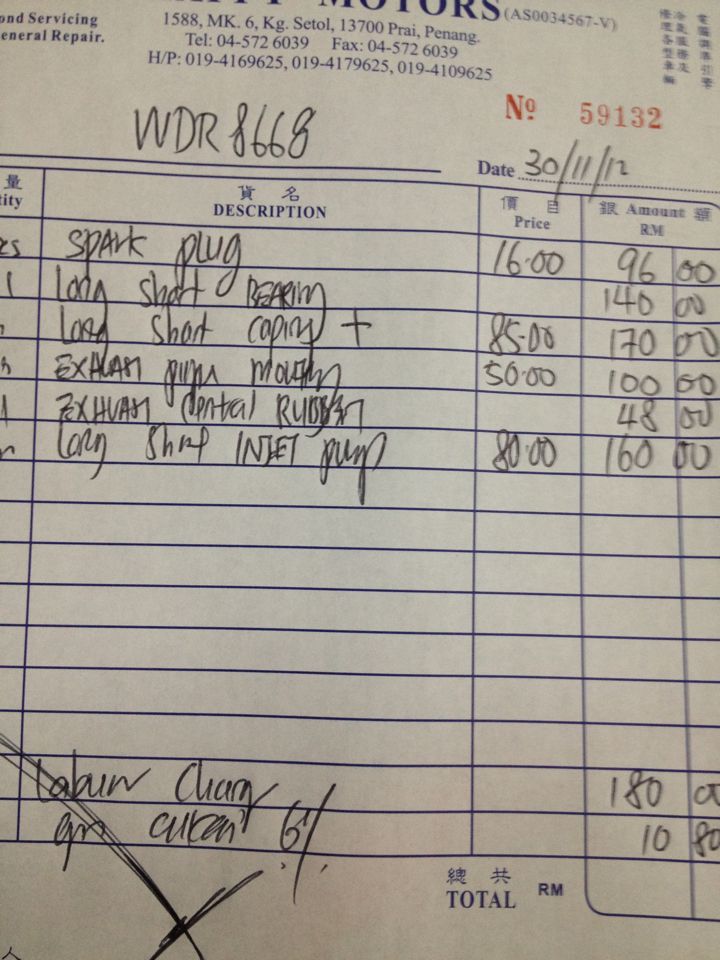 MOTORS (AS0034567-V)
ond Servicing
eneral Repair.
1588, MK. 6, Kg. Setol, 13700 Prai, Penang.
Tel: 04-572 6039 Fax: 04-572 6039
H/P: 019-4169625, 019-4179625, 019-4109625
Nº 59132
WDR 8668
Date 30/11/12
量 貨名 價目 銀 Amount 額
tity DESCRIPTION Price RM
SPARK plug 16.00 96 00
1 Long Short BEARIN 140 00
Long Short 85.00 170 00
EXHUAM 50.00 100 00
1 EXHUAM RUBBER 48 00
Long INLET 80.00 160 00
Labuur Charg 180 00
cukai 6% 10 80
總共
TOTAL RM